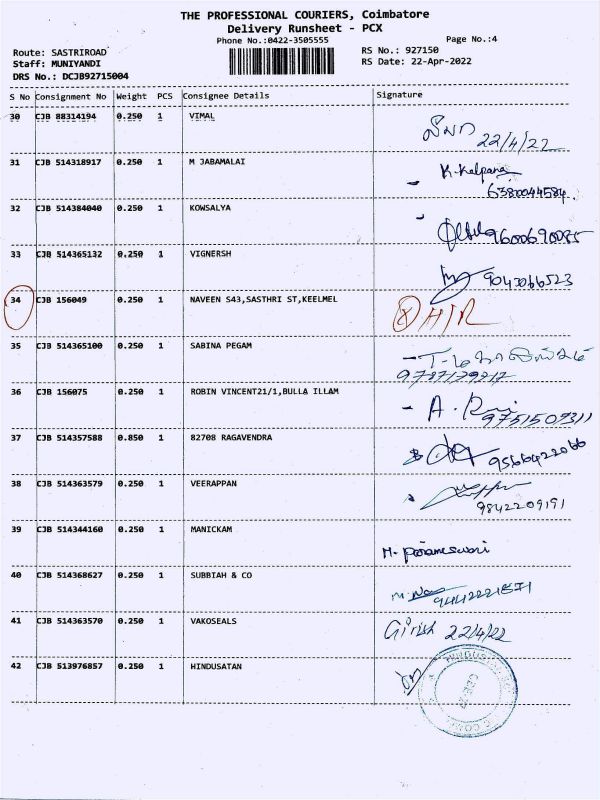 THE PROFESSIONAL COURIERS, Coimbatore
Delivery Runsheet - PCX
Phone No.:0422-3505555
Page No.:4
Route: SASTRIROAD
RS No.: 927150
Staff: MUNIYANDI
RS Date: 22-Apr-2022
DRS No.: DCJB92715004
S No Consignment No Weight PCS Consignee Details Signature
30 CJB 88314194 0.250 1 VIMAL
22/4/22
31 CJB 514318917 0.250 1 M JABAMALAI K.Kalpana
6380044584
32 CJB 514384040 0.250 1 KOWSALYA
9600690085
33 CJB 514365132 0.250 1 VIGNERSH
9043066523
34 CJB 156049 0.250 1 NAVEEN S43,SASTHRI ST,KEELMEL
H/R
35 CJB 514365100 0.250 1 SABINA PEGAM
36 CJB 156075 0.250 1 ROBIN VINCENT21/1,BULLA ILLAM
9751507311
37 CJB 514357588 0.850 1 82708 RAGAVENDRA
9566422066
38 CJB 514363579 0.250 1 VEERAPPAN
9842209191
39 CJB 514344160 0.250 1 MANICKAM
M. Parameswari
40 CJB 514368627 0.250 1 SUBBIAH & CO
41 CJB 514363570 0.250 1 VAKOSEALS Girish 22/4/22
42 CJB 513976857 0.250 1 HINDUSATAN